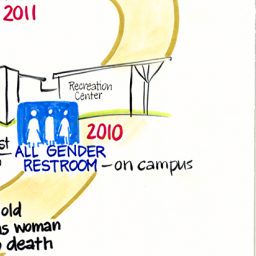 2011
Recreation
Center
2010
st
ALL GENDER
RESTROOM – on campus
old
s woman
death